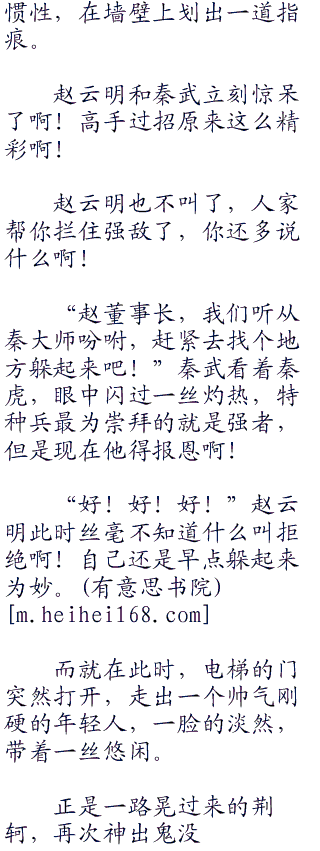 惯性，在墙壁上划出一道指
痕。
赵云明和秦武立刻惊呆
了啊！高手过招原来这么精
彩啊！
赵云明也不叫了，人家
帮你拦住强敌了，你还多说
什么啊！
“赵董事长，我们听从
秦大师吩咐，赶紧去找个地
方躲起来吧！”秦武看着秦
虎，眼中闪过一丝灼热，特
种兵最为崇拜的就是强者，
但是现在他得报恩啊！
“好！好！好！”赵云
明此时丝毫不知道什么叫拒
绝啊！自己还是早点躲起来
为妙。(有意思书院)
[m.heihei168.com]
而就在此时，电梯的门
突然打开，走出一个帅气刚
硬的年轻人，一脸的淡然，
带着一丝悠闲。
正是一路晃过来的荆
轲，再次神出鬼没